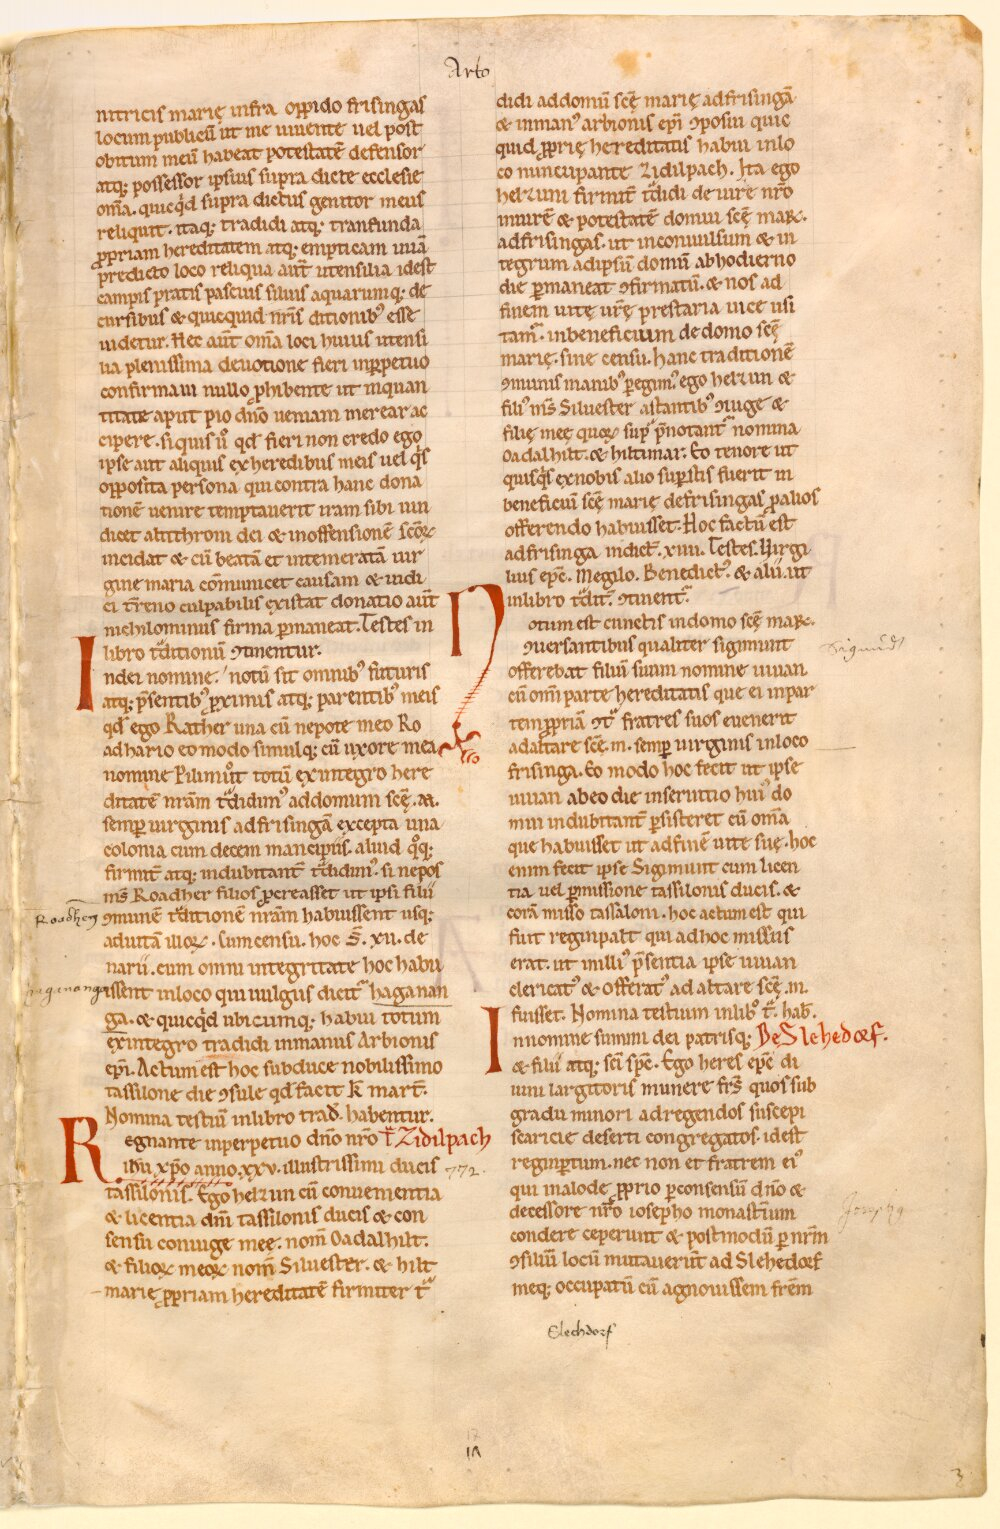 Arbo
nitricis marię infra oppido frisingas
locum publicū ut me uiuente uel post
obitum meū habeat potestatē defensor
atq; possessor ipsius supra dicte ecclesie
om̄a. quicq̇d supra dictus genitor meus
reliquit. itaq; tradidi atq; tranfunda
ꝓpriam hereditatem atq; empticam in iā
predicto loco reliqua aut̄ utensilia idest
campis pratis pascuis siluis aquarumq; de
cursibus & quicquid nr̄is ditionibꝰ esse
uidetur. Hec aut̄ om̄a loci huius utensi
lia plenissima deuotione fieri inꝑpetuo
confirmaui nullo ꝓhibente ut inquan
titate aput pio dn̄o ueniam merear ac
cipere. siquis ů qd̄ fieri non credo ego
ipse aut aliquis exheredibus meis uel q̇s
opposita persona qui contra hanc dona
tionē uenire temptauerit iram sibi uin
dicet altithroni dei & inoffensionē sc̄oꝝ
incidat & cū beatā et intemeratā uir
gine maria com̄unicet causam & iudi
ci tr̄eno culpabilis existat donatio aut̄
nichilominus firma ꝑmaneat. Testes in
libro tᵃditionū ꝯtinentur.
Indei nomine. notū sit omnibꝰ futuris
atq; p̄sentibꝰ ꝓximis atq; parentibꝰ meis
qd̄ ego Rather una cū nepote meo Ro
adhario eo modo simulq; cū uxore mea
nomine Pilimůt totū exintegro here
ditatē nr̄am tᵃdidimꝰ addomum sc̄ę. M.
semꝑ uirginis adfrisingā excepta una
colonia cum decem mancipiis. aliud q̊q;
firmit̄ atq; indubitant̄ tᵃdidimꝰ. si nepos
ms̄ Roadher filios procreasset ut ipsi filii
ꝯmunē tᵃditionē nr̄am habuissent usq;
aduitā illoꝝ. Cum censu. hoc .S̄. xii. de
narii. cum omni integritate hoc habu
issent inloco qui uulgus dicitᵃ haganan
ga. & quicq̇d ubicumq; habui totum
exintegro tradidi inmanus Arbionis
ep̄i. Actum est hoc subduce nobilissimo
tassilone die ꝯsule qd̄ facit k̄ mart̄.
Nomina testiū inlibro trad̄. habentur.
Regnante inperpetuo dn̄o nr̄o t̄ Zidilpach
ihū xp̄o anno. xxv. illustrissimi ducis
tassilonis. Ego helzun cū conuenientia
& licentia dn̄i tassilonis ducis & con
sensu coniuge mee. nom̄ Oadalhilt.
& filioꝝ meoꝝ nom̄ Siluester. & hilt
marię ꝓpriam hereditatē firmiter tᵃ
Roadherj
haganangā
772.
didi addomū sc̄ę marię adfrisingā
& inmanꝰ arbionis ep̄i ꝯposui quic
quid ꝓprię hereditatis habui inlo
co nuncupante Zidilpach. Ita ego
helzuni firmit̄ tᵃdidi de iure nr̄o
iniurē & potestatē domui sc̄ę maꝝ.
adfrisingas. ut inconuulsum & in
tegrum adipsū domū abhodierno
die ꝑmaneat ꝯfirmatū. & nos ad
finem uitę ur̄ę prestaria uice usi
tam̄. inbeneficium de domo sc̄ę
marię. sine censu. hanc traditionē
ꝯmunis manibꝰ ꝑegimꝰ. ego helzun &
filiꝰ ms̄ Siluester astantibꝰ ꝯiuge &
filię meę quoꝝ supᵃ p̄notantᵃ nomina
Oadalhilt. & hiltimar. Eo tenore ut
quisq̇s exnobis alio supꝑstis fuerit in
beneficiū sc̄ę marię defrisingas ꝓalios
offerendo habuisset. Hoc factū est
adfrisinga indict̄. xiiii. Testes. Uirgi
lius ep̄c. Megilo. Benedictꝰ. & alii. ut
inlibro tᵃdit̄. ꝯtinentᵃ.
Notum est cunctis in domo sc̄ę maꝝ.
ꝯuersantibus qualiter sigimunt
offerebat filiū suum nomine uuiuan
cū om̄i parte hereditatis que ei inpar
tem ꝓpriā ꝯtᵃ fratres suos euenerit
adaltare sc̄ę. m. semꝑ uirginis inloco
frisinga. Eo modo hoc fecit ut ipse
uuiuan abeo die inseruitio huiꝰ do
mui indubitant̄ ꝑsisteret cū om̄a
que habuisset ut adfinē uite suę. hoc
enim fecit ipse Sigimunt cum licen
tia uel ꝑmissione tassilonis ducis. &
corā misso tassiloni. hoc actum est qui
fuit reginpalt qui adhoc missus
erat. ut illiꝰ p̄sentia ipse uuiuan
clericatꝰ & offeratꝰ ad altare sc̄ę. m.
fuisset. Nomina testium inlib̊ tᵃ. hab̄.
Innomine summi dei patrisq; De Slehedorf.
& filii atq; sc̄i sp̄c. Ego heres ep̄c di
uini largitoris munere fr̄s quos sub
gradu minori adregendos suscepi
scaricie deserti congregatos. idest
reginꝑtum. nec non et fratrem eiꝰ
qui inalode ꝓprio ꝑconsensū dn̄o &
decessore nr̄o iosepho monastˡum
condere ceperunt & postmodū ꝑ nr̄m
ꝯsiliū locū mutauer̄t ad Slehedorf
meq; occupatū cū agnouissem fr̄em
Sigmundt
Josephꝯ
Slechdorf
17
3